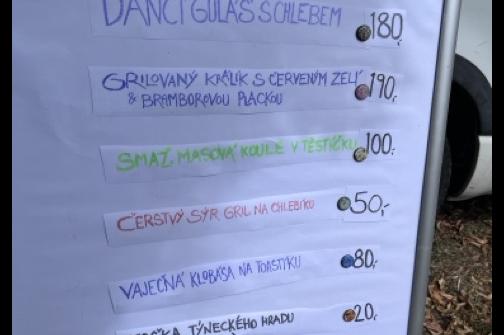 DANČÍ GULÁŠ S CHLEBEM 180,-
GRILOVANÝ KRÁLÍK S ČERVENÝM ZELÍ 190,-
& BRAMBOROVOU PLACKOU
SMAŽ. MASOVÁ KOULE V TĚSTÍČKU 100,-
ČERSTVÝ SÝR GRIL NA CHLEBÍKU 50,-
VAJEČNÁ KLOBÁSA NA TOASTÍKU 80,-
TÝNECKÉHO HRADU 20,-